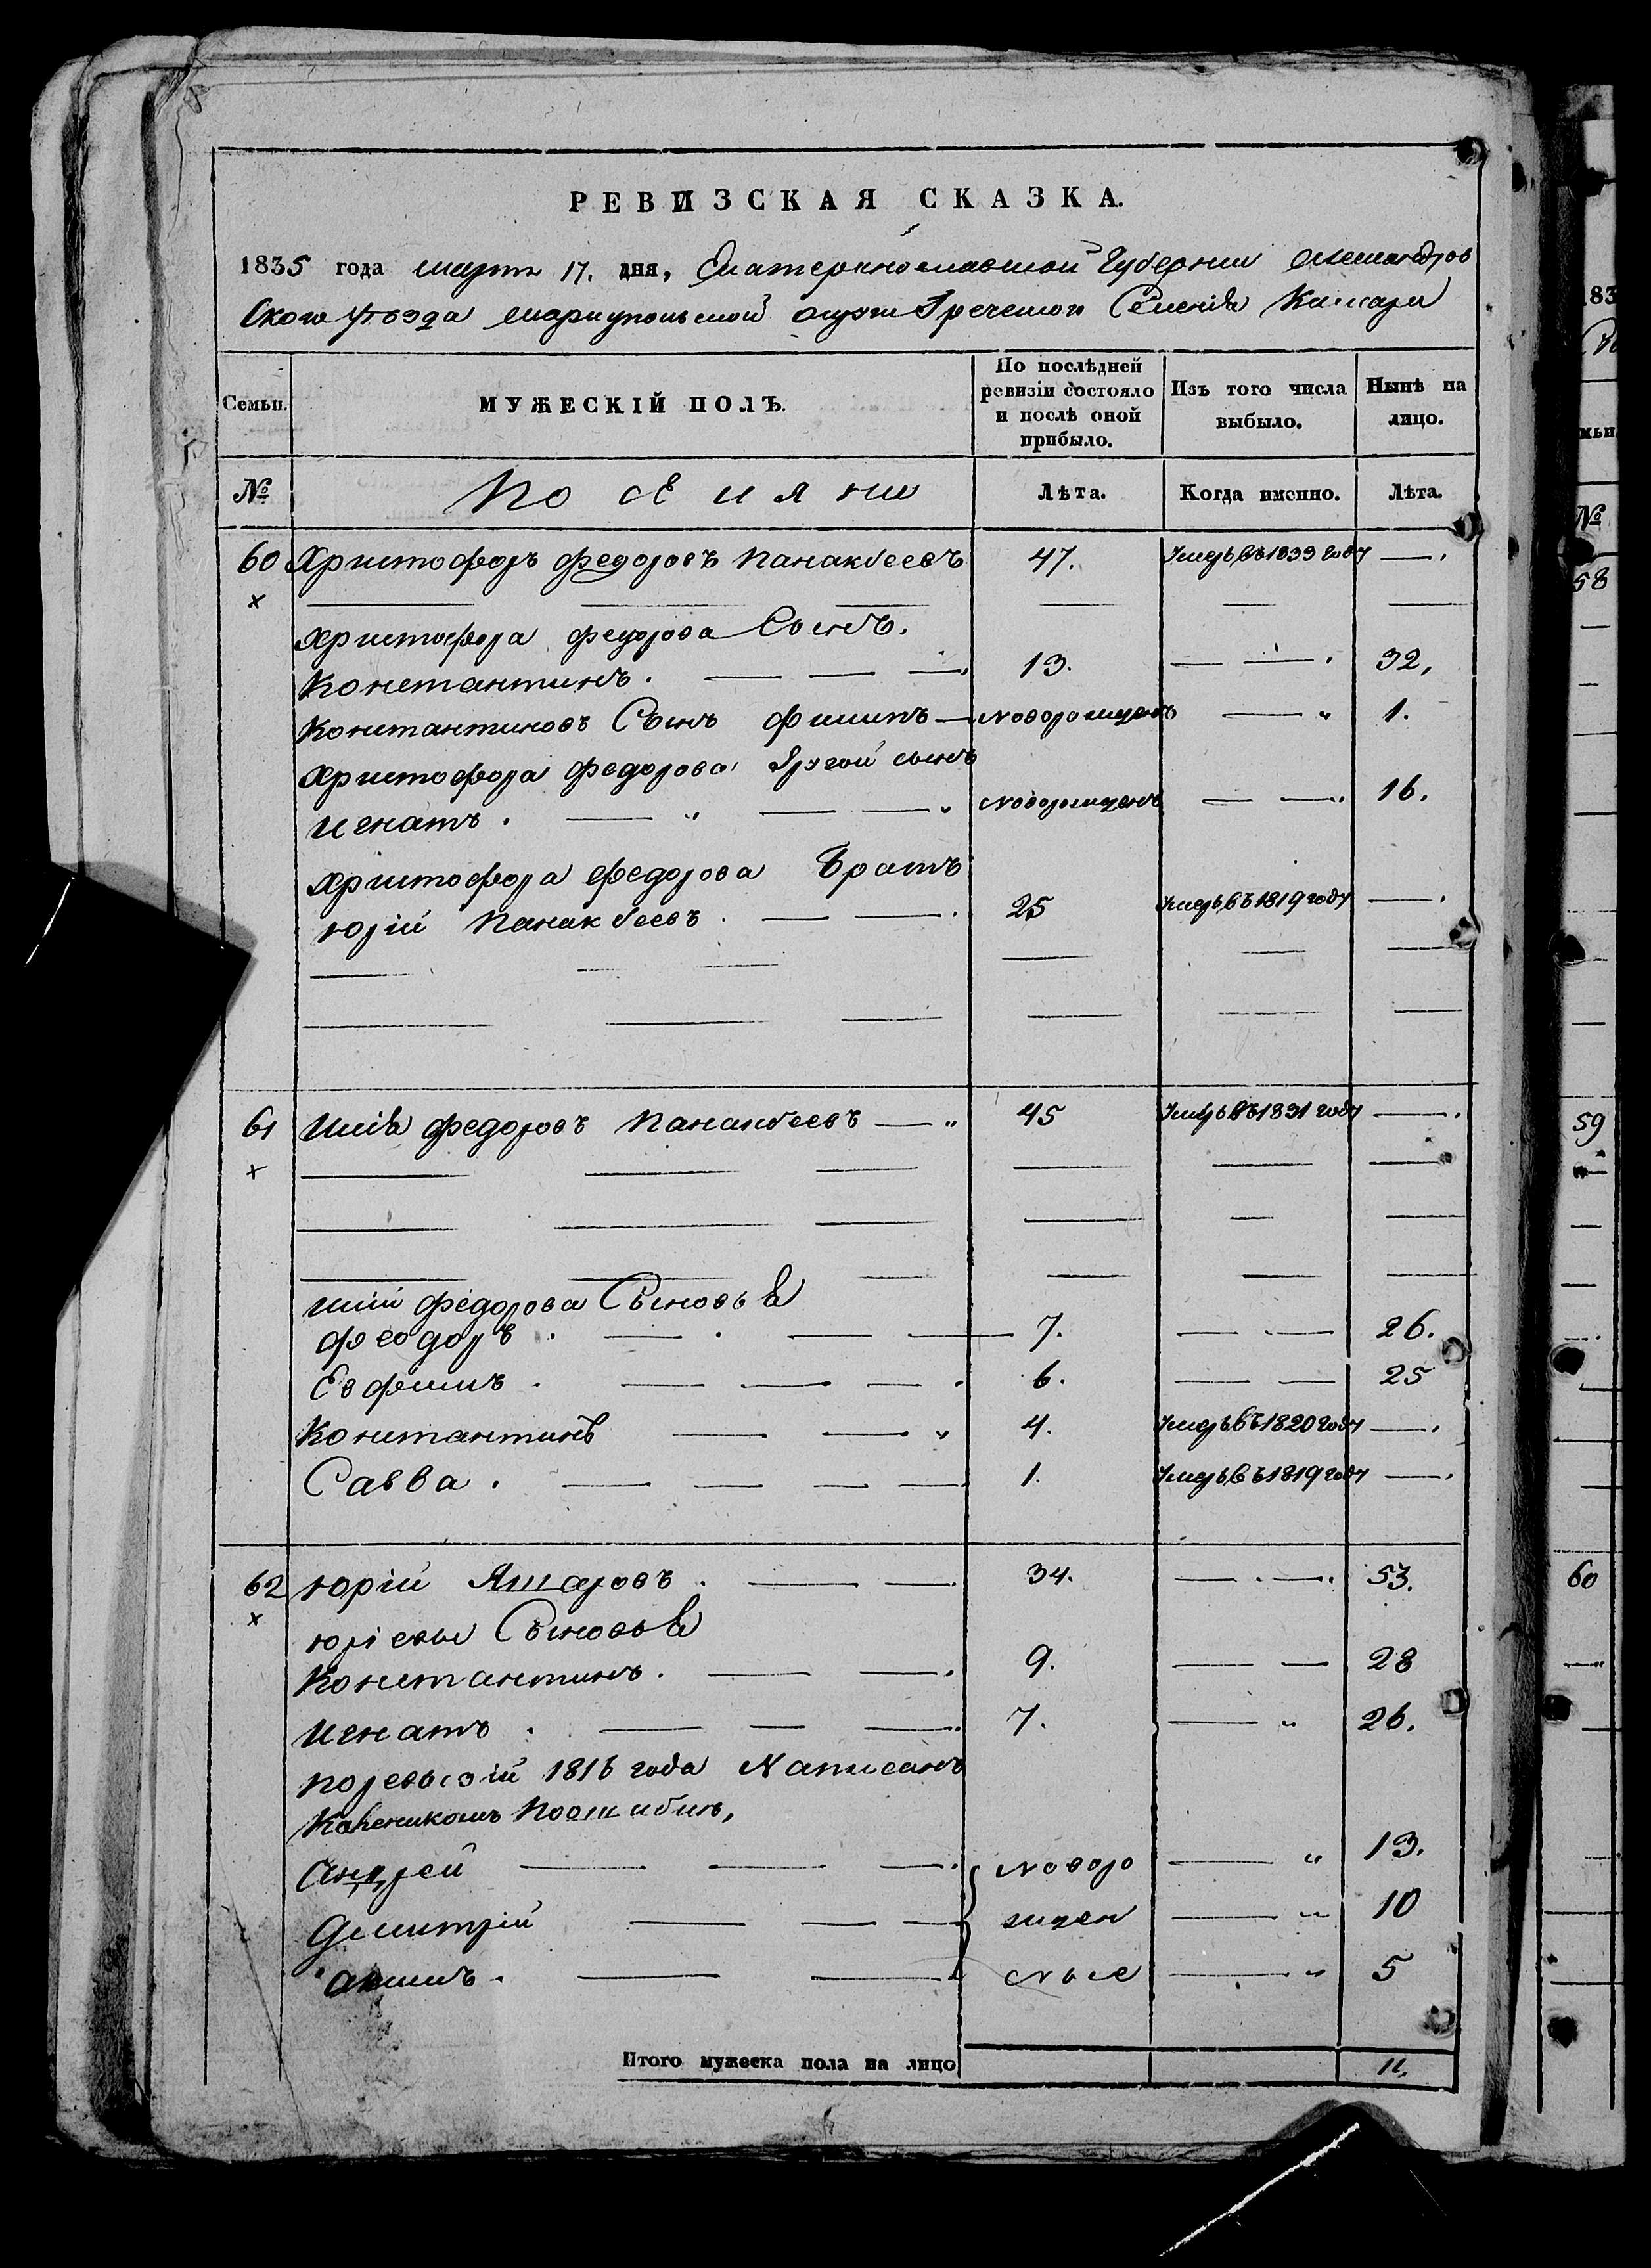 РЕВИЗСКАЯ СКАЗКА.
1835 года марта 17. дня, Екатеринославской Губернии Александров
Скаго уѣзда Мариупольской округи Греческого Селенія
Семьи. МУЖЕСКІЙ ПОЛЪ. По послѣдней ревизіи состояло и послѣ оной прибыло. Изъ того числа выбыло. Нынѣ на лицо.
№ Поселяни Лѣта. Когда именно. Лѣта.
60 Христофоръ Федоровъ Панакбеевъ 47. Умеръ въ 1833 году
Христофора Федорова Сынъ.
Константинъ. 13. 32,
Константиновъ Сынъ Филипъ новорожденъ 1.
Христофора Федорова другой сынъ
Игнатъ. новорожденъ 16.
Христофора Федорова Братъ
Юрій Панакбеевъ. 25 Умеръ въ 1819 году
61 Илія Федоровъ Панакбеевъ 45 Умеръ въ 1831 году
Иліи Федорова Сыновья
Феодоръ. 7. 26.
Евфимъ. 6. 25
Константинъ 4. Умеръ въ 1820 году
Савва. 1. Умеръ въ 1819 году
62 Юрій Яшаровъ. 34. 53.
Юріевы Сыновья
Константинъ. 9. 28
Игнатъ. 7. 26.
поревизіи 1816 года Написанъ
Андрей новоро 13.
Дмитрій жден 10
ные 5
Итого мужеска пола на лицо 11.
83
мьи
№
58
59
60